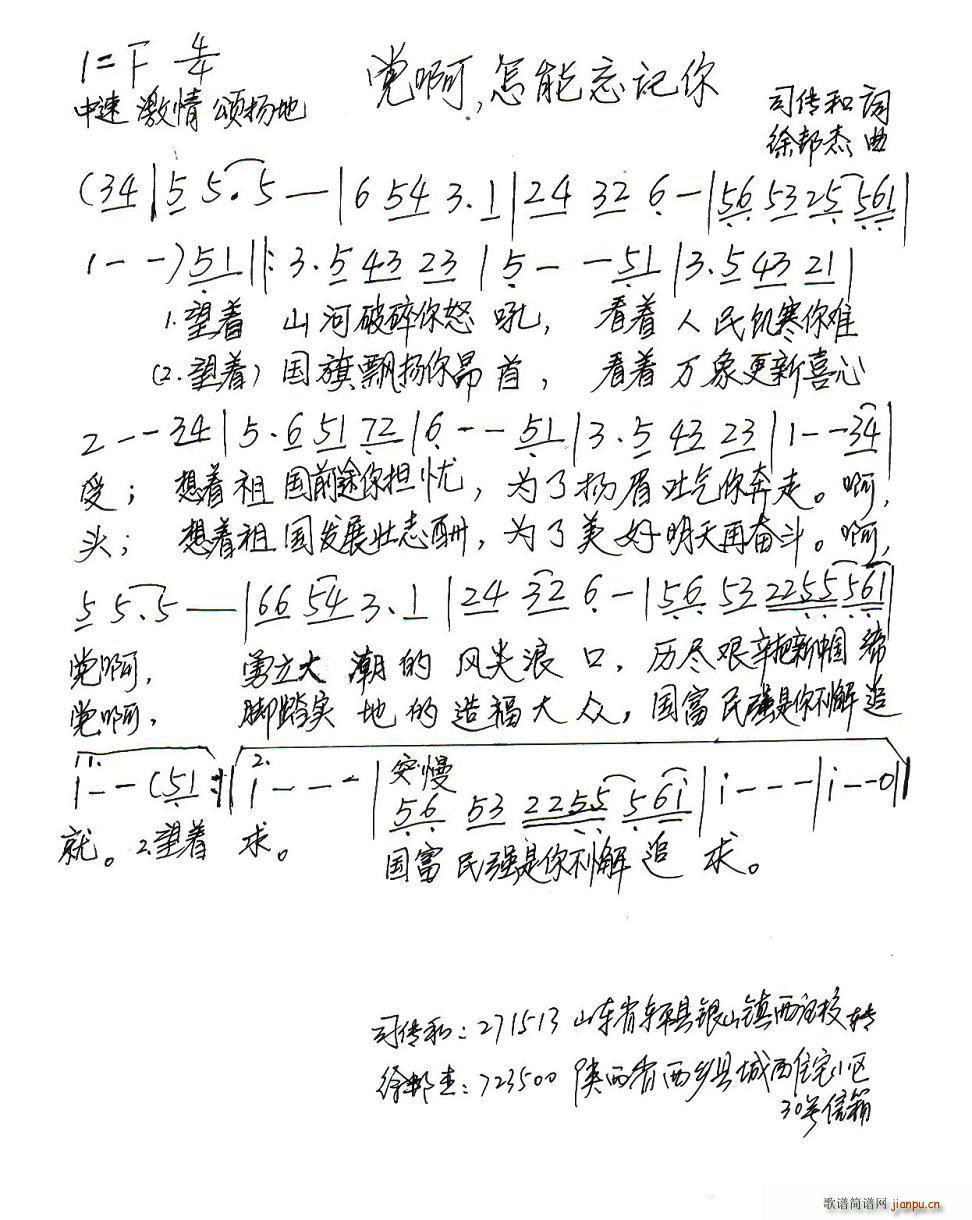 1=F 4/4
党啊，怎能忘记你
中速 激情 颂扬地
司传和 词
徐邦杰 曲
(34|5 5.5—|6 54 3.1|24 32 6-|56 53 25 561|
1--)51‖:3.5 43 23|5--51|3.5 43 21|
1.望着 山河破碎你怒吼， 看着人民饥寒你难
(2.望着)国旗飘扬你昂首， 看着万象更新喜心
2--34|5.6 51 72|6--51|3.5 43 23|1--34|
受； 想着祖国前途你担忧，为了扬眉吐气你奔走。啊，
头； 想着祖国发展壮志酬，为了美好明天再奋斗。啊，
5 5.5—|66 54 3.1|24 32 6-|56 53 2255 561|
党啊， 勇立大潮的风尖浪口，历尽艰辛把新中国缔
党啊， 脚踏实地的造福大众，国富民强是你不懈追
1. 2. 突慢
1--(51:‖i---|56 53 2255 56i|i---|i--0‖
就。2.望着 求。 国富民强是你不懈追求。
司传和：271513 山东省东平县银山镇西
徐邦杰：723500 陕西省西乡县城西住宅小区
30号信箱
歌谱简谱网 jianpu.cn